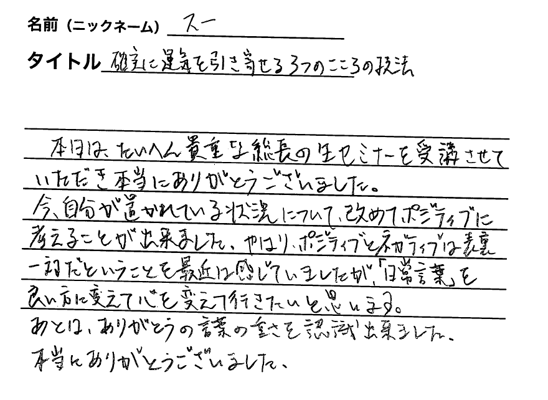 名前（ニックネーム） スー
タイトル 確実に運気を引き寄せる3つのこころの技法
本日は、たいへん貴重な総長の生セミナーを受講させて
いただき本当にありがとうございました。
今、自分が置かれている状況について、改めてポジティブに
考えることが出来ました。やはり、ポジティブとネガティブは表裏
一対だということを最近は感じていましたが、「日常言葉」を
良い方に変えて心を変えて行きたいと思います。
あとは、ありがとうの言葉の重さを認識出来ました。
本当にありがとうございました。